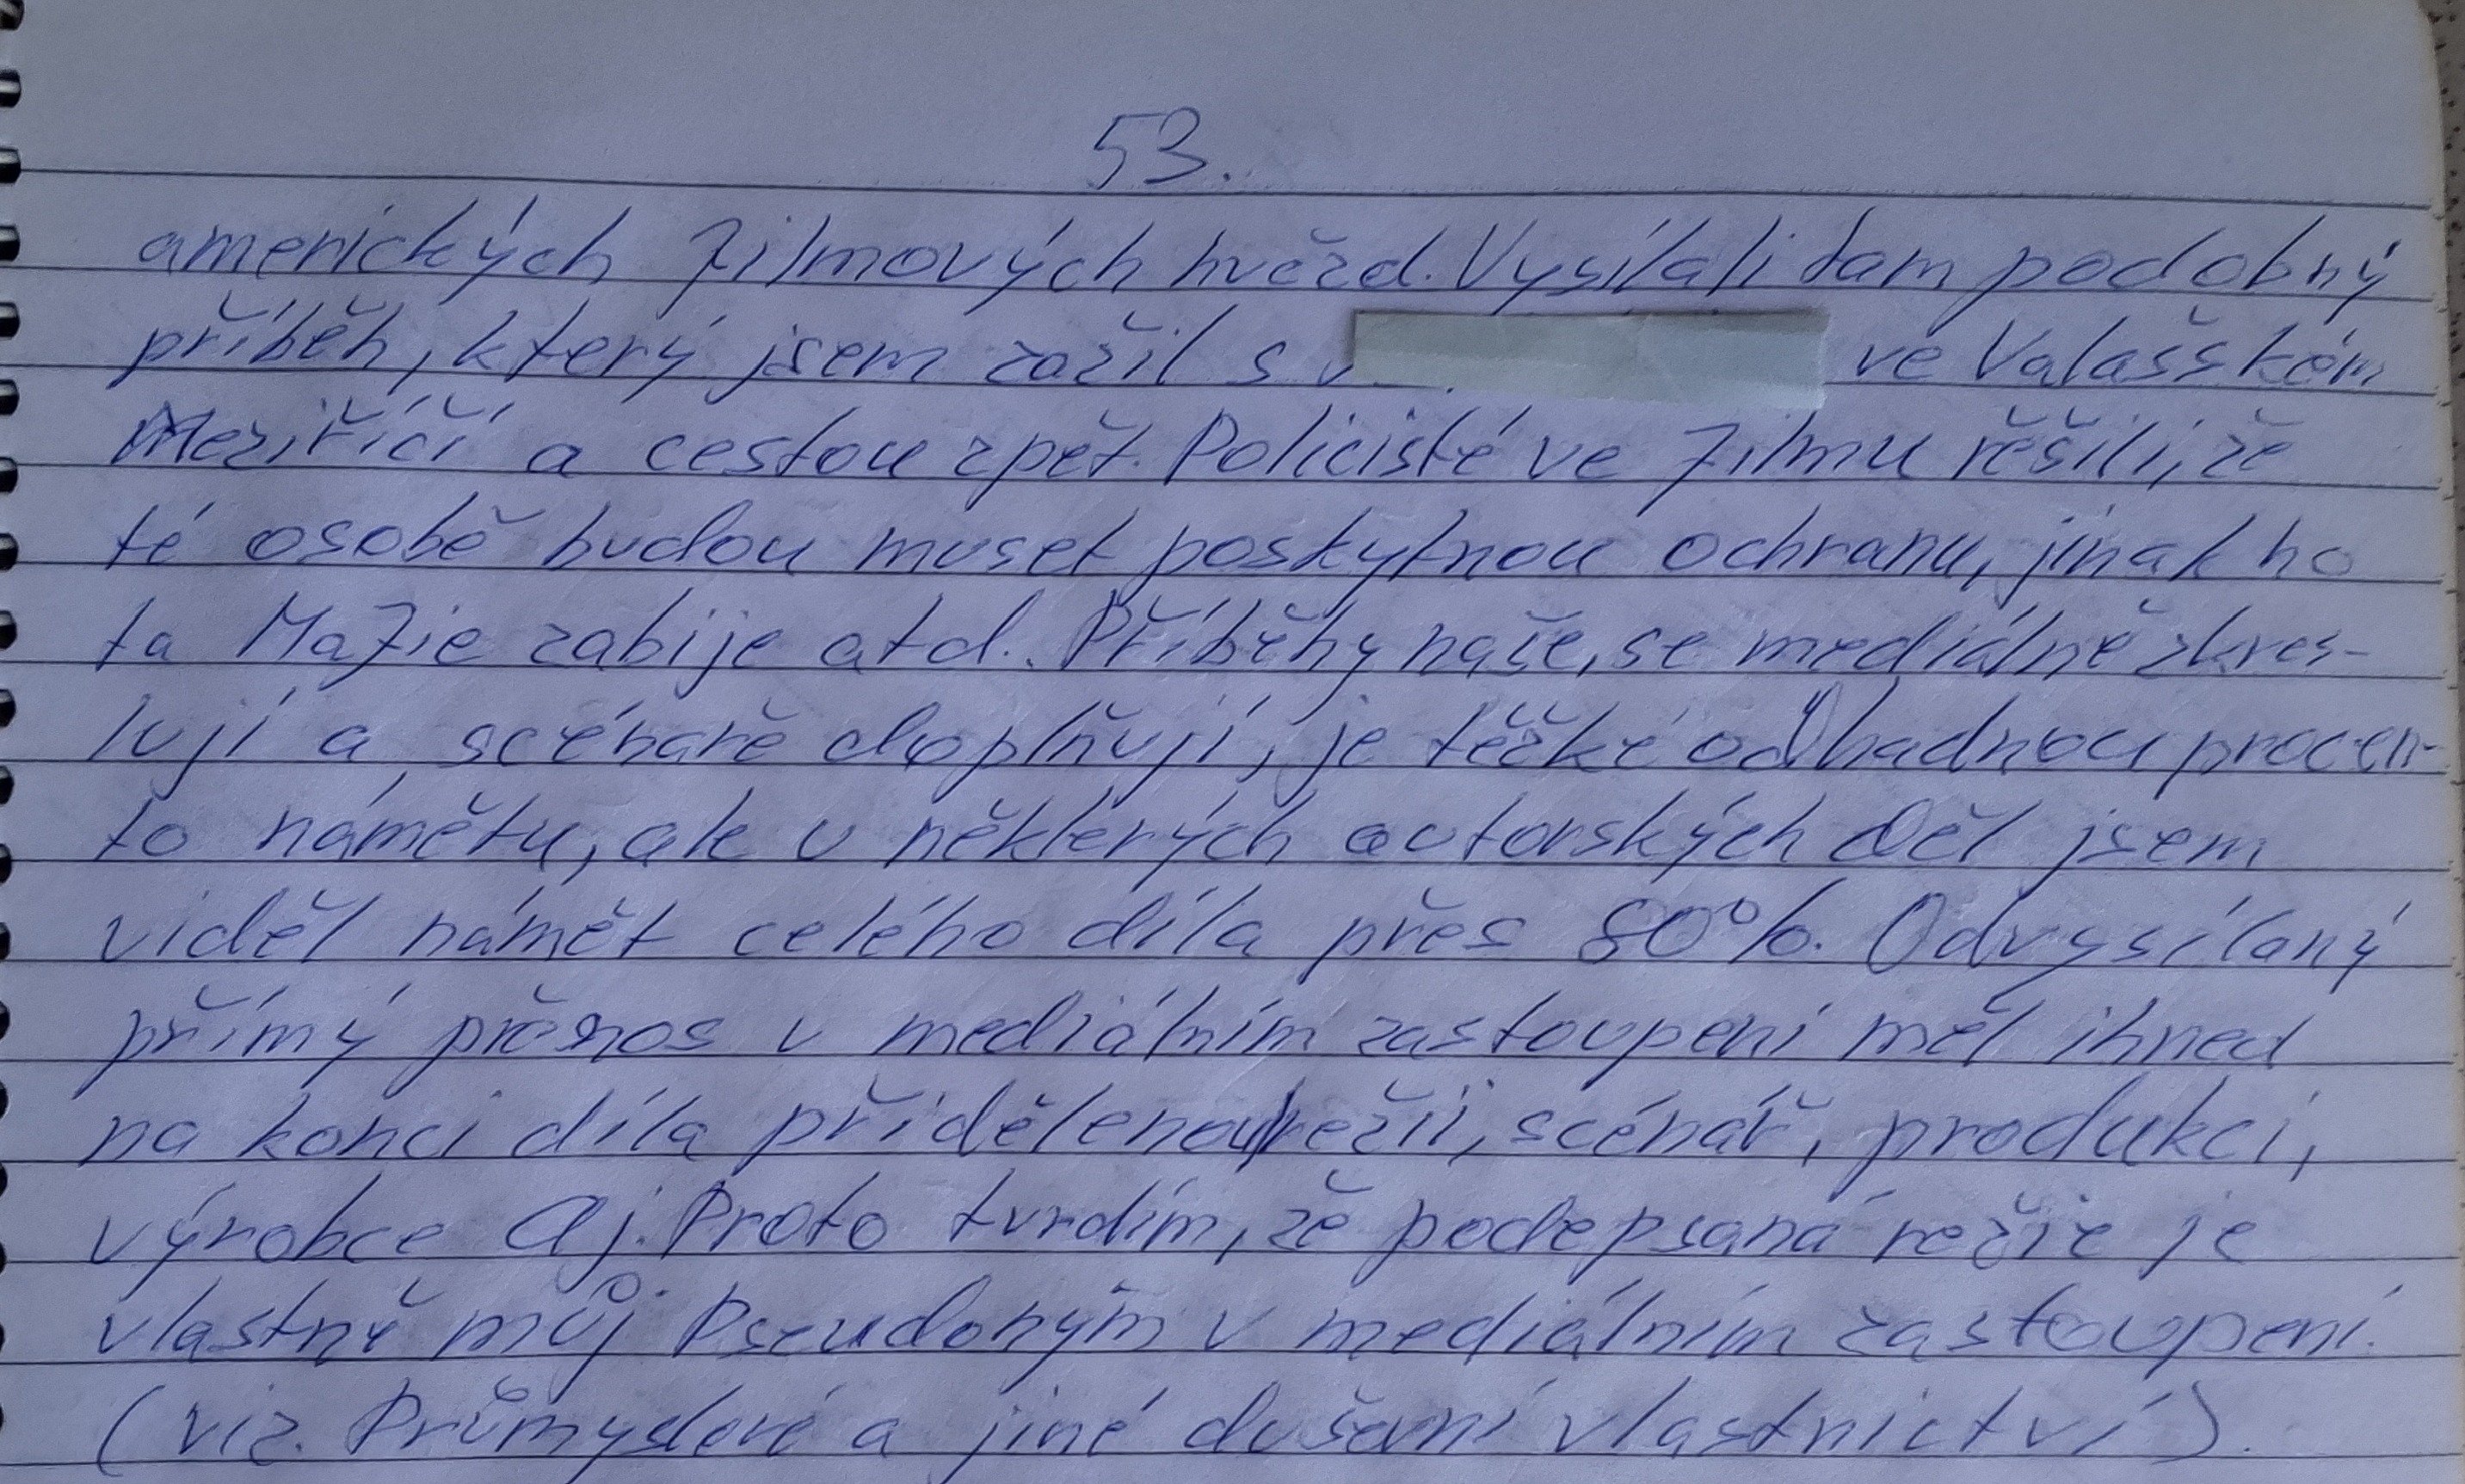 53.
amerických filmových hvězd. Vysílali tam podobný
příběh, který jsem zažil s ve Valašském
Meziříčí a cestou zpět. Policisté ve filmu řěšili, že
té osobě budou muset poskytnou ochranu, jinak ho
ta Mafie zabije atd.. Příběhy naše, se mediálně zkres-
lují a scénáře doplňují, je těžké odhadnou procen-
to námětu, ale u některých autorských děl jsem
viděl námět celého díla přes 80%. Odvysílaný
přímý přenos v mediálním zastoupení měl ihned
na konci díla přidělenou režii, scénář, produkci,
výrobce aj. Proto tvrdím, že podepsaná režie je
vlastně můj Pseudoným v mediálním zastoupení.
(viz. Průmyslové a jiné duševní vlastnictví).